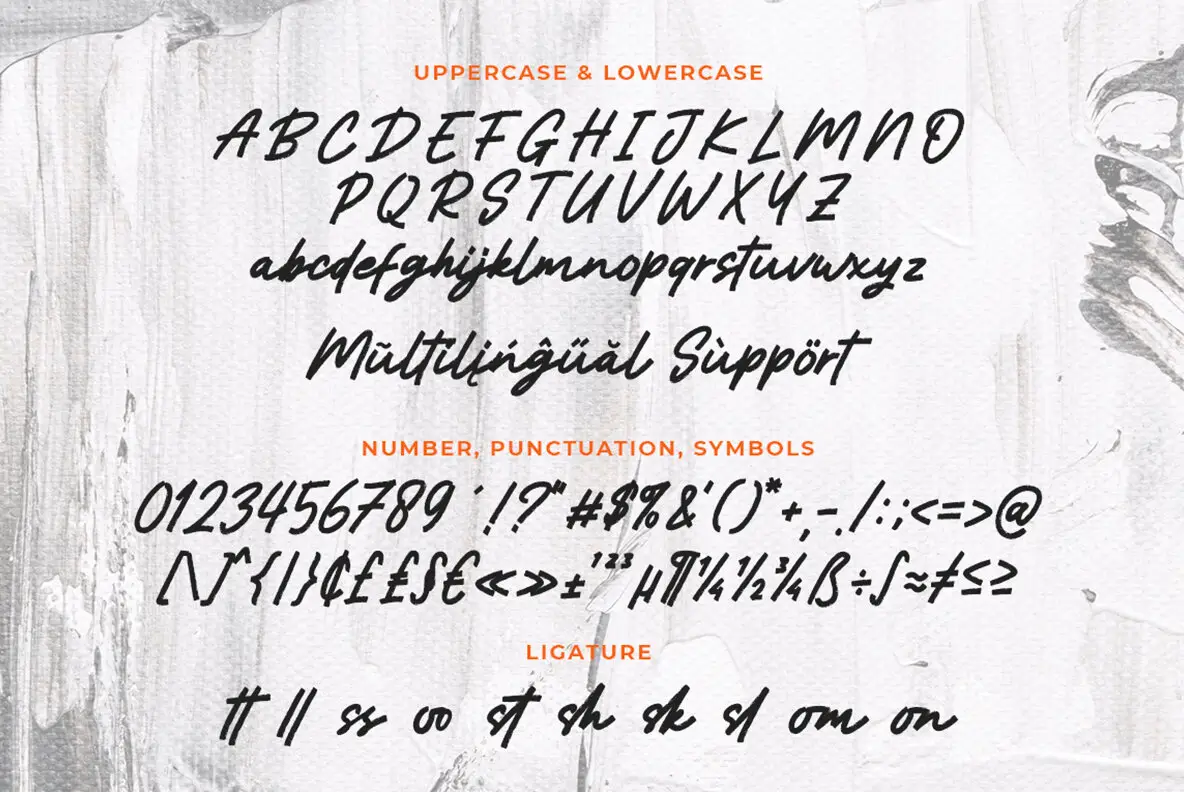 UPPERCASE & LOWERCASE
ABCDEFGHIJKLMNO
PQRSTUVWXYZ
abcdefghijklmnopqrstuvwxyz
Mũltïlįńĝűăl Sùppört
NUMBER, PUNCTUATION, SYMBOLS
0123456789 ' !?"#$%&'()*+,-./:;<=>@
[\]^{|}¢£₤§€«»±¹²³µ¶¼½¾ß÷∫≈≠≤≥
LIGATURE
tt ll ss oo st sh sk sl om on